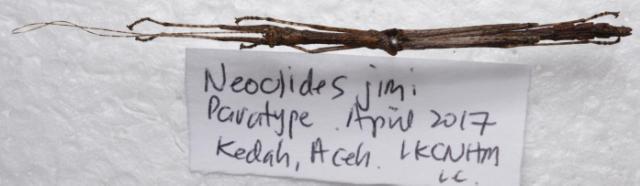 Neoclides jimi
Paratype. April 2017
Kedah, Aceh. LKCNHM